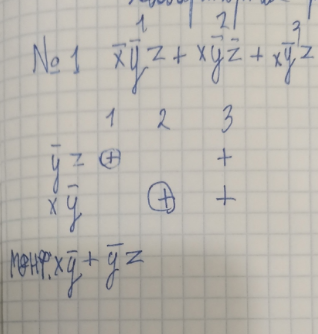 1 2 3
№1 x̅y̅z + xy̅z̅ + xy̅z
1 2 3
y̅z ⊕ +
xy̅ ⊕ +
МДНФ: xy̅ + y̅z